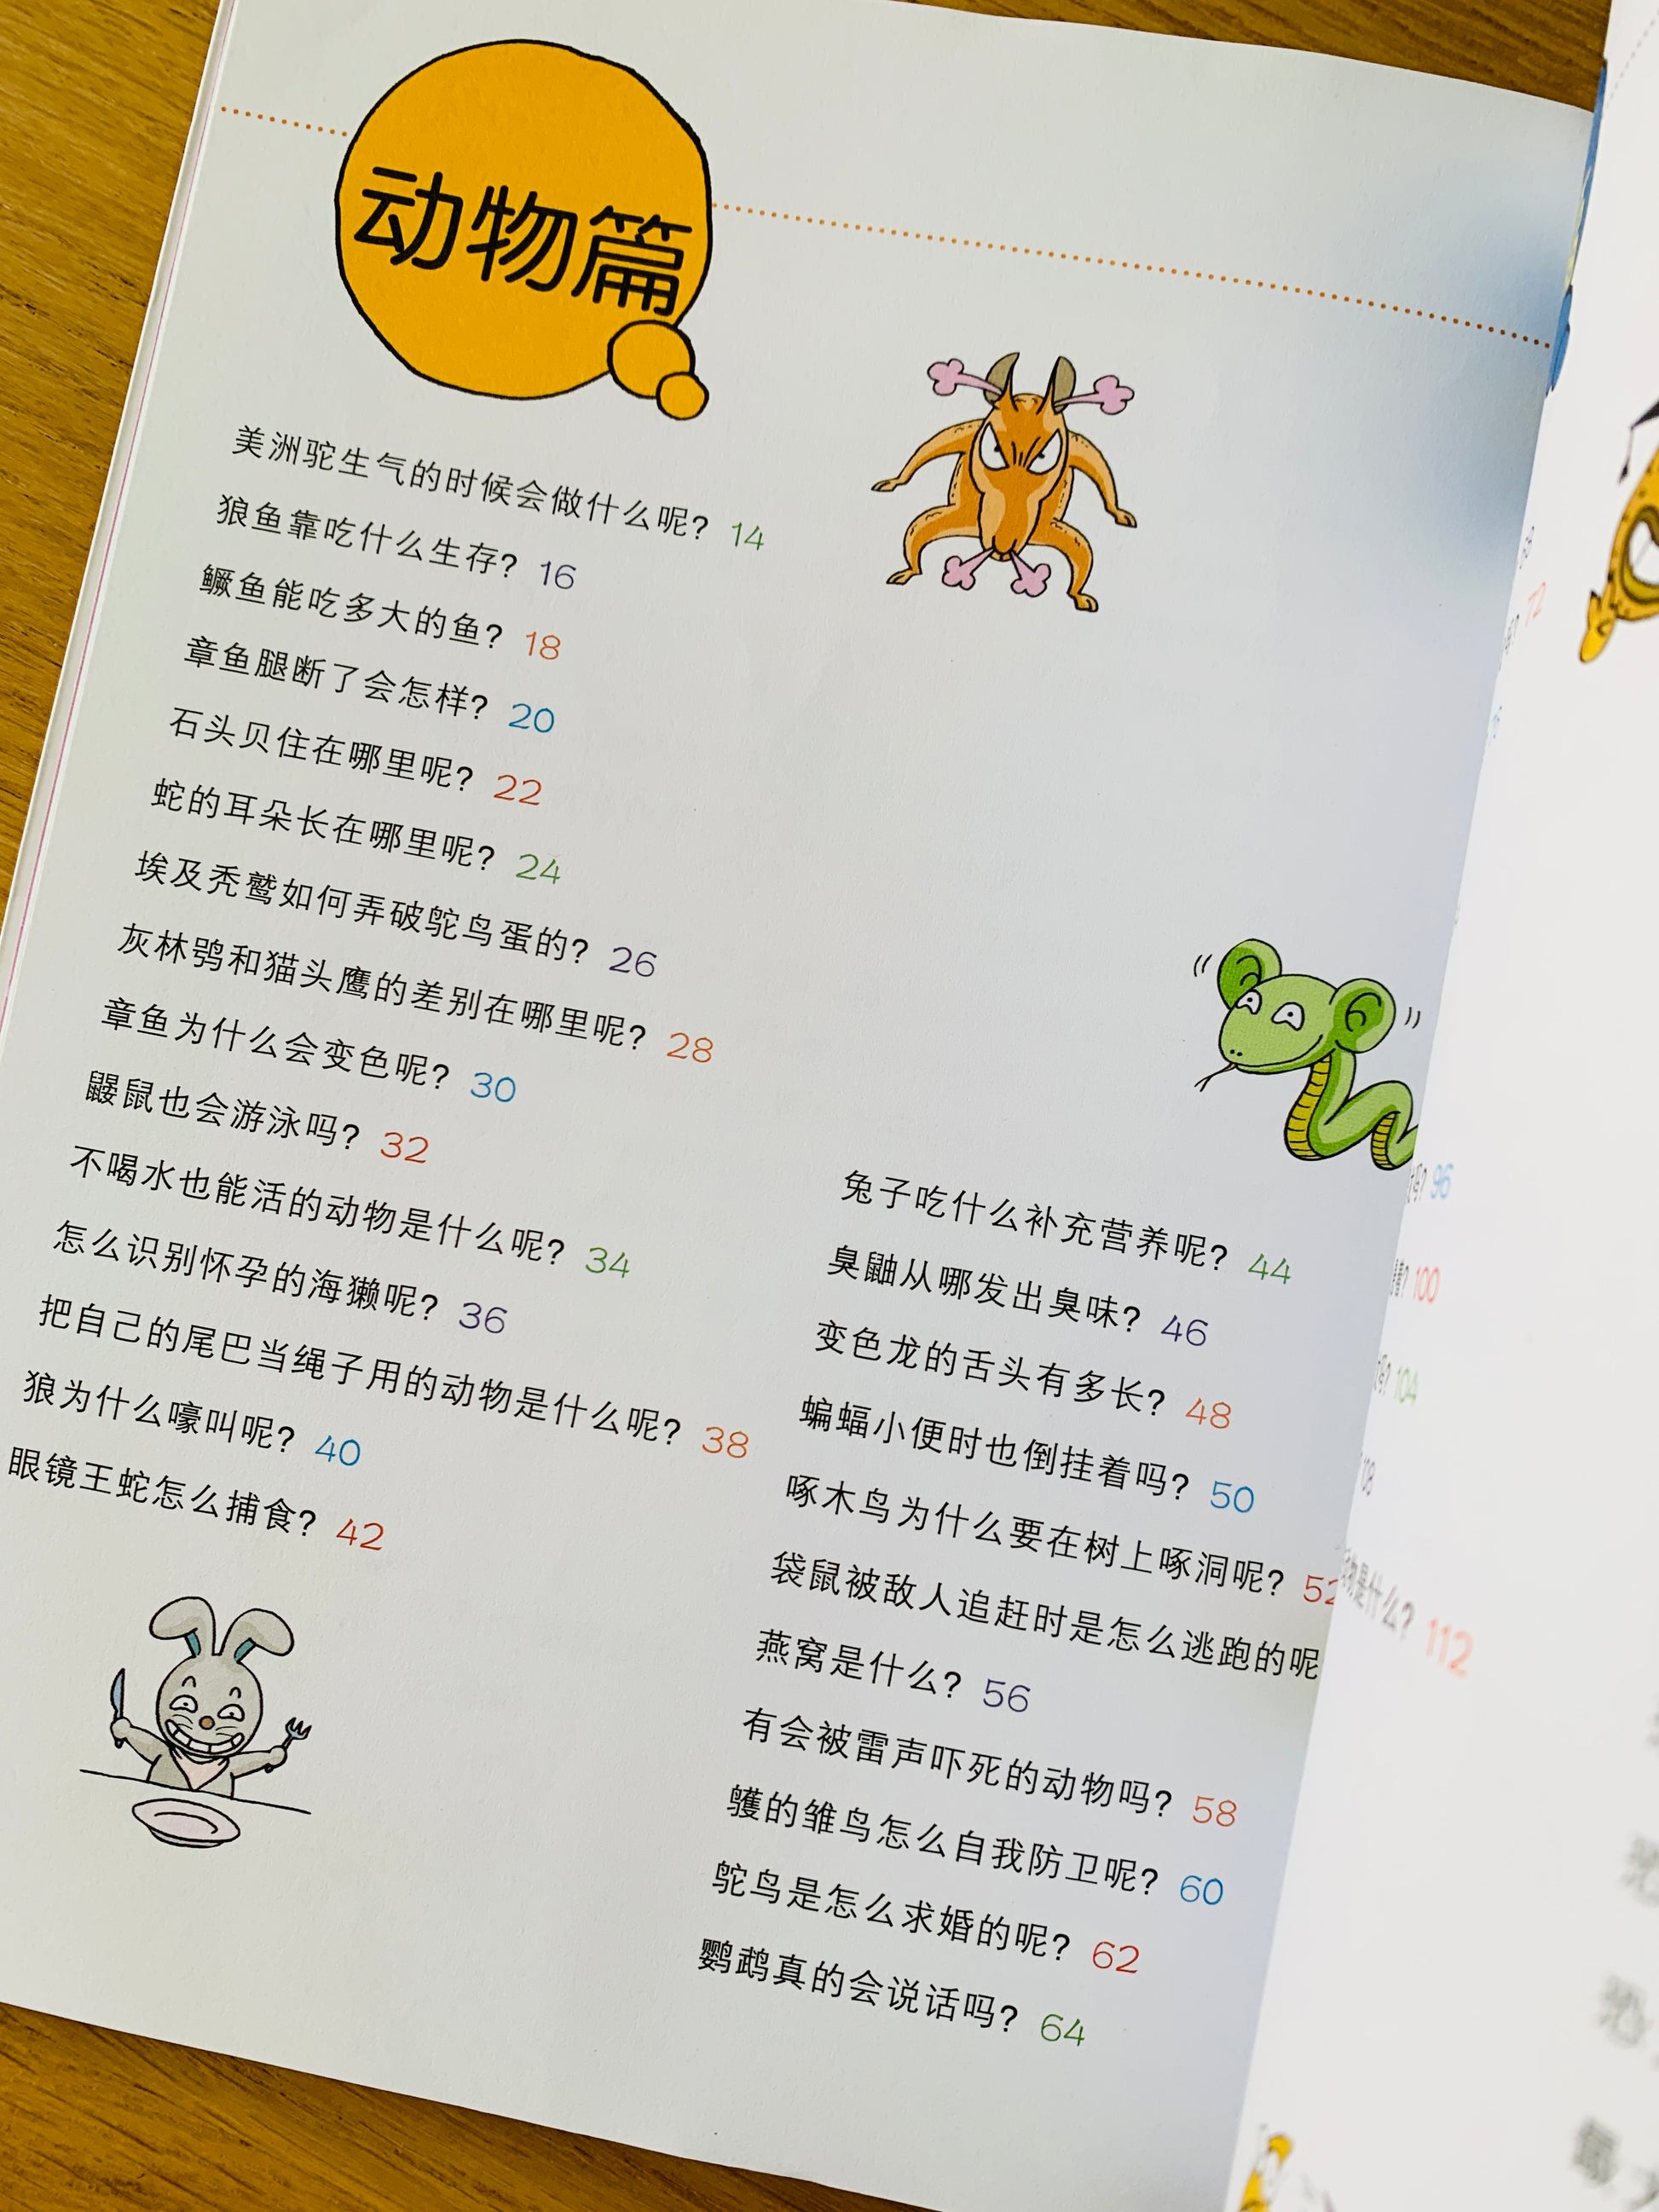 动物篇
美洲驼生气的时候会做什么呢? 14
狼鱼靠吃什么生存? 16
鳜鱼能吃多大的鱼? 18
章鱼腿断了会怎样? 20
石头贝住在哪里呢? 22
蛇的耳朵长在哪里呢? 24
埃及秃鹫如何弄破鸵鸟蛋的? 26
灰林鸮和猫头鹰的差别在哪里呢? 28
章鱼为什么会变色呢? 30
鼹鼠也会游泳吗? 32
不喝水也能活的动物是什么呢? 34
怎么识别怀孕的海獭呢? 36
把自己的尾巴当绳子用的动物是什么呢? 38
狼为什么嚎叫呢? 40
眼镜王蛇怎么捕食? 42
兔子吃什么补充营养呢? 44
臭鼬从哪发出臭味? 46
变色龙的舌头有多长? 48
蝙蝠小便时也倒挂着吗? 50
啄木鸟为什么要在树上啄洞呢? 52
袋鼠被敌人追赶时是怎么逃跑的呢
燕窝是什么? 56
有会被雷声吓死的动物吗? 58
鹱的雏鸟怎么自我防卫呢? 60
鸵鸟是怎么求婚的呢? 62
鹦鹉真的会说话吗? 64
72
96
100
104
物是什么? 112